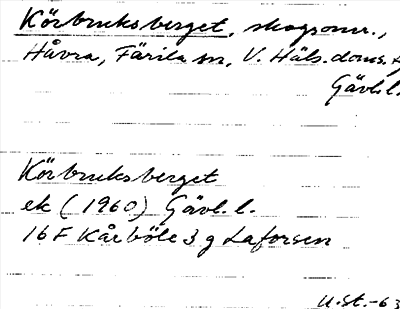 Körbruksberget, skogsomr.,
Håvra, Färila sn, V. Häls. doms.
Gävl.l.
Körbruksberget
ek (1960) Gävl. l.
16 F Kårböle 3 g Laforsen
U.St.-63